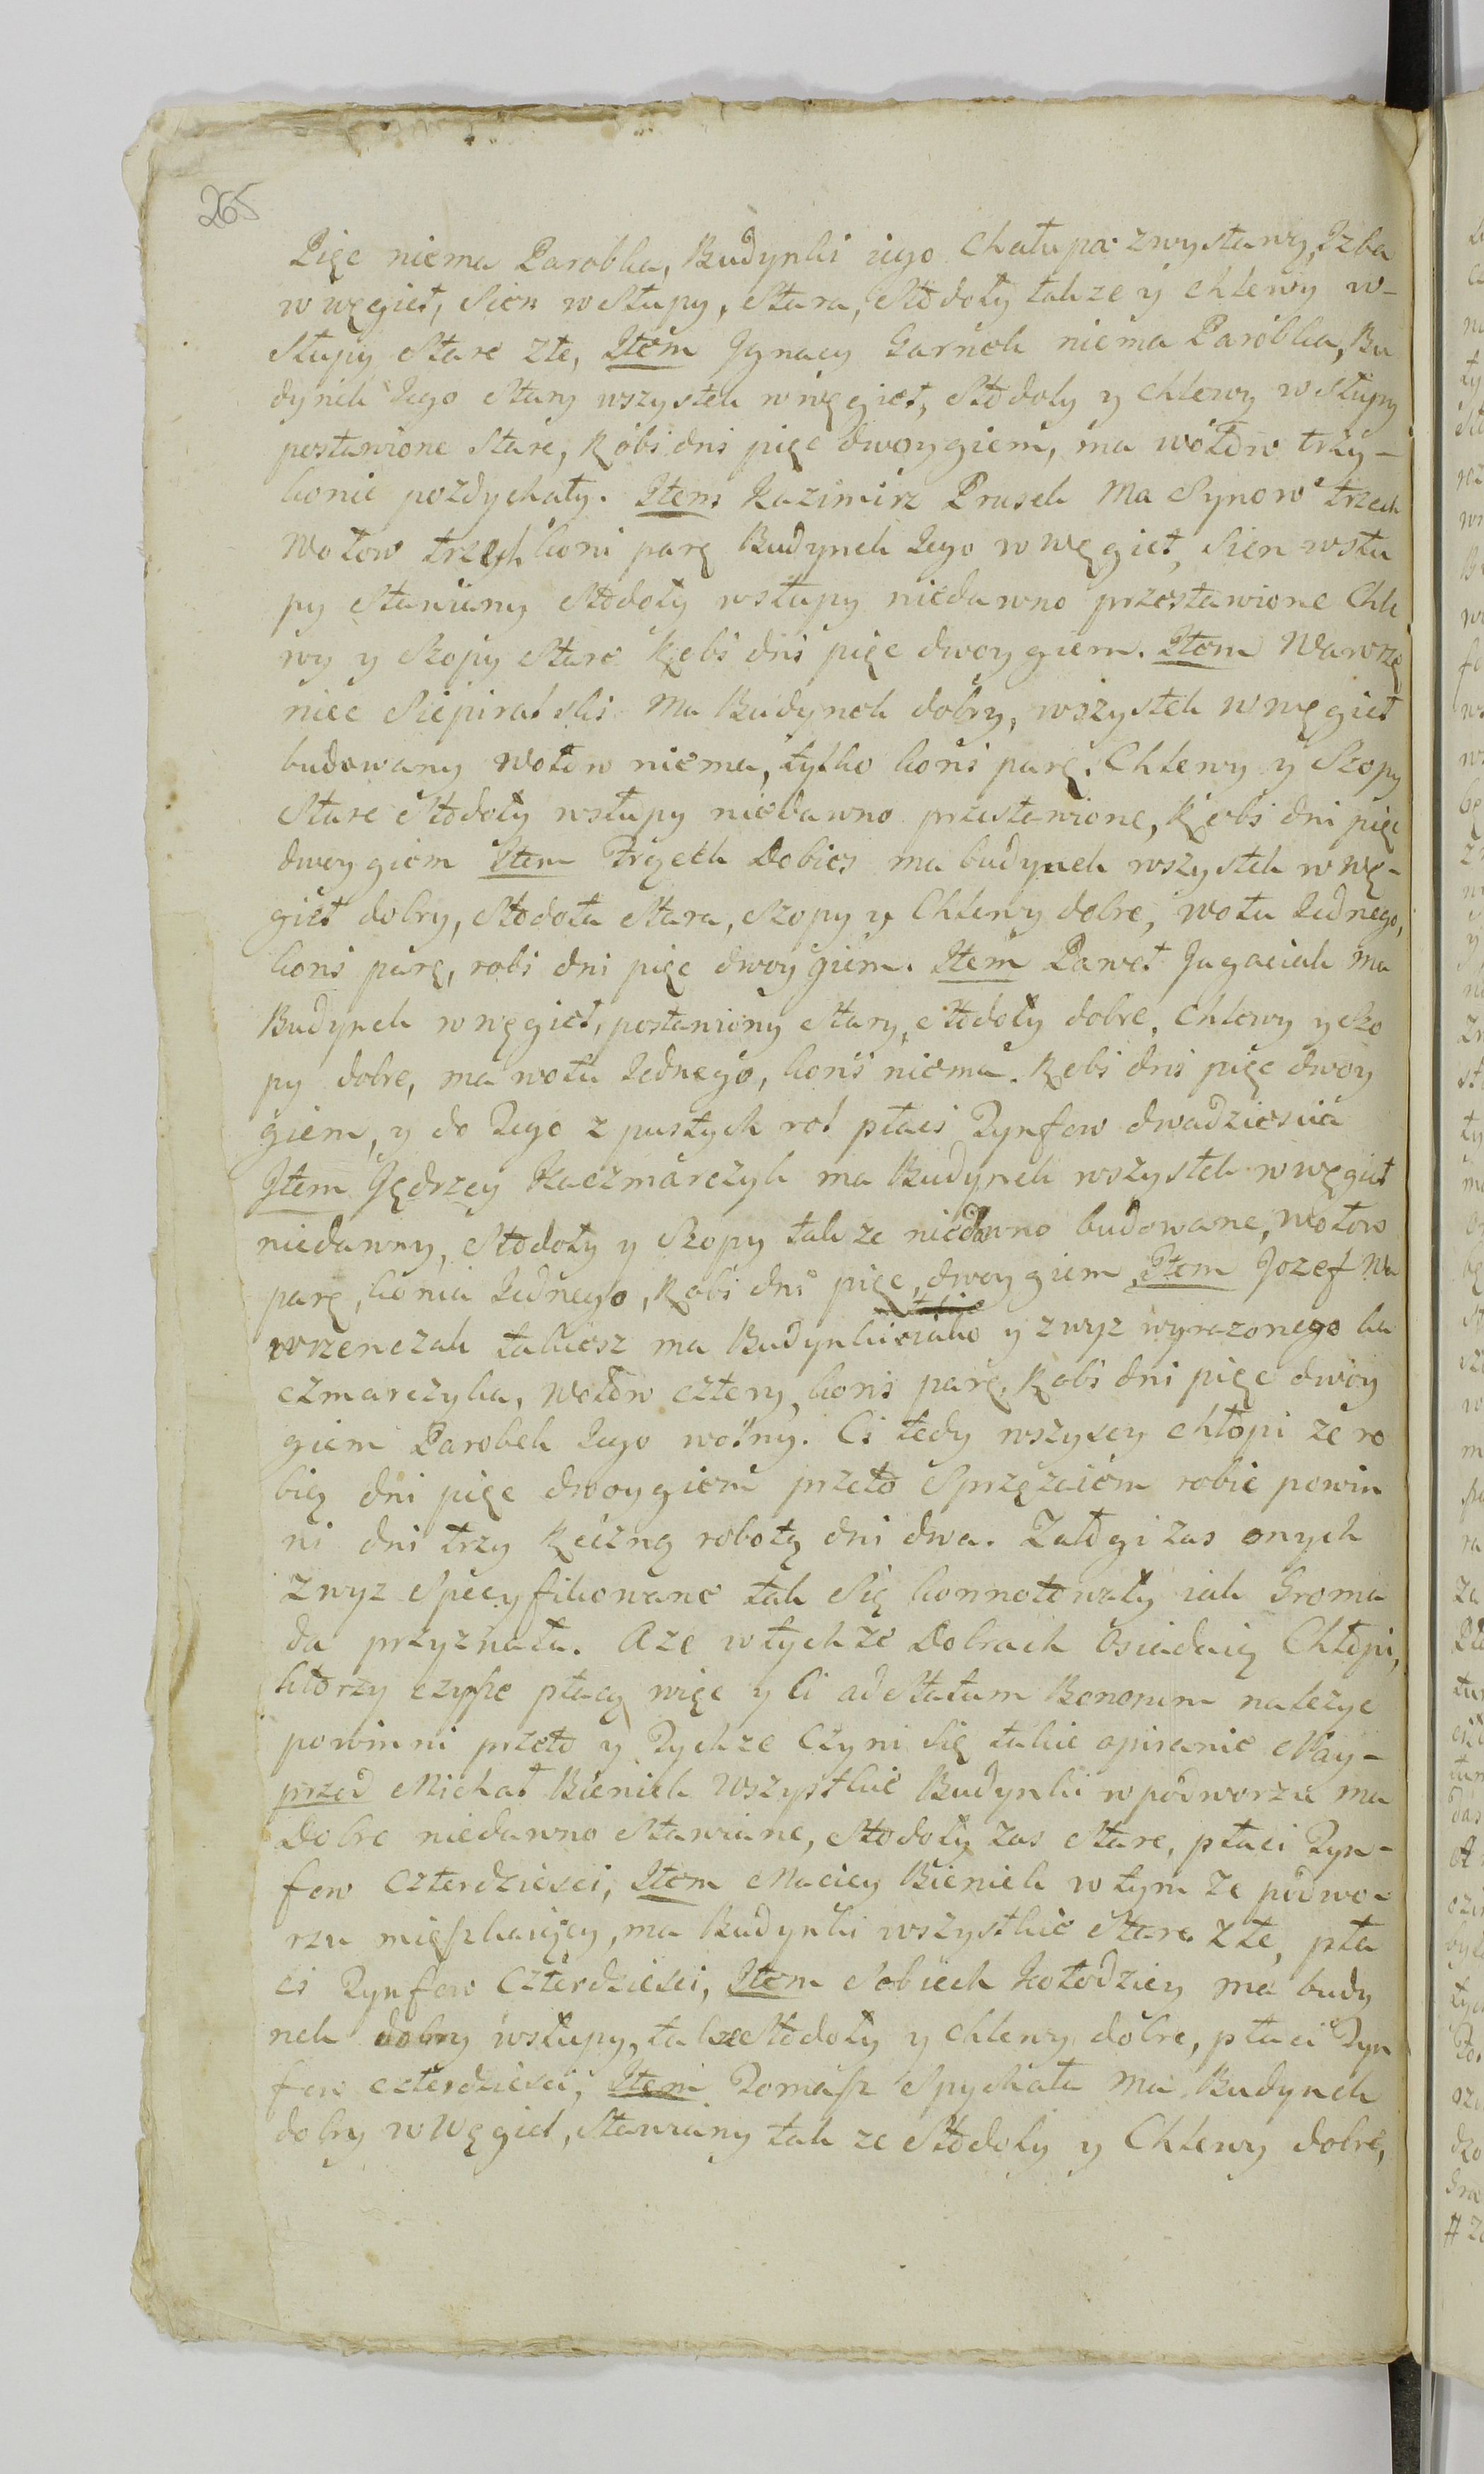 265
Pięc niema Parobka, Budynki iego Chałupa zwystawy, Izba
w węgieł, Sien w Słupy, Stara, Stodoły takze y Chlewy w-
Słupy Stare złe, Item Jgnacy Garnek niema Parobka, Bu
dynek Iego Stary wszystek w węgieł, Stodoły y Chlewy w Słupy
postawione Stare, Robi dni pięc dwoygiem, ma wołow trzy-
konie pozdychały. Item Kazimirz Prusek Ma Synow trzech
Wołow trzech koni parę Budynek Iego w węgieł, Sien wsłu
py Stawiany Stodoły wsłupy niedawno przestawione Chle
wy y Szopy Stare Robi dni pięc dwoygiem. Item Wawrzę
niec Siepiralski Ma Budynek dobry, wszystek w węgieł
budowany wołow niema, tylko koni parę. Chlewy y Szopy
Stare Stodoły wsłupy niedawno przestawione, Robi dni pięc
dwoygiem Item Frącek Dobies ma budynek wszystek w wę-
gieł dobry, Stodoła Stara, Szopy y Chlewy dobre, wołu Iednego,
koni parę, robi dni pięc dwoygiem. Item Paweł Jagaciak Ma
Budynek w węgieł, postawiony Stary, Stodoły dobre, Chlewy y Szo
py dobre, ma wołu Iednego, koni niema. Robi dni pięc dwoy
giem, y do Tego z pustych rol płaci Tynfow dwadziescia
Jtem Jędrzey Kaczmarczyk ma Budynek wszystek w węgieł
niedawny, Stodoły y Szopy takze niedawno budowane, wołow
parę, konia Iednego, Robi dni pięc, dwoygiem Item Jozef Wa
wrzenczak takiesz ma Budynki iako y zwyz wyrazonego ka
czmarczyka, wołow cztery, koni parę. Robi dni pięc dwoy
giem Parobek Iego wolny. Ci tedy wszyscy chłopi ze ro
bią dni pięc dwoygiem przeto Sprzęzaiem robic powin
ni dni trzy Ręczną robotą dni dwa. Załogi zas onych
zwyz Specyfikowane tak Się konnotowały iak Groma
da przyznała. Aze w tychze Dobrach Osiadaią Chłopi,
ktorzy czynsze płacą więc y Ci ad Statum Bonorum nalezyc
powinni przeto y Tychze Czyni Się takie opisanie Nay-
przod Michał Bieniek Wszystkie Budynki w podworzu ma
Dobre niedawno Stawiane, Stodoły zas Stare, płaci Tyn-
fow Czterdziesci, Item Maciey Bieniek w tym ze podwo-
rzu mieszkaiący, ma Budynki wszystkie Stare Złe, pła
ci Tynfow Czterdziesci, Item Sobiech Kołodziey ma budy
nek dobry wsłupy, takze Stodoły y Chlewy dobre, płaci Tyn
fow czterdziesci, Item Tomasz Spychała Ma Budynek
dobry w Węgieł, Stawiany tak ze Stodoły y Chlewy dobre,